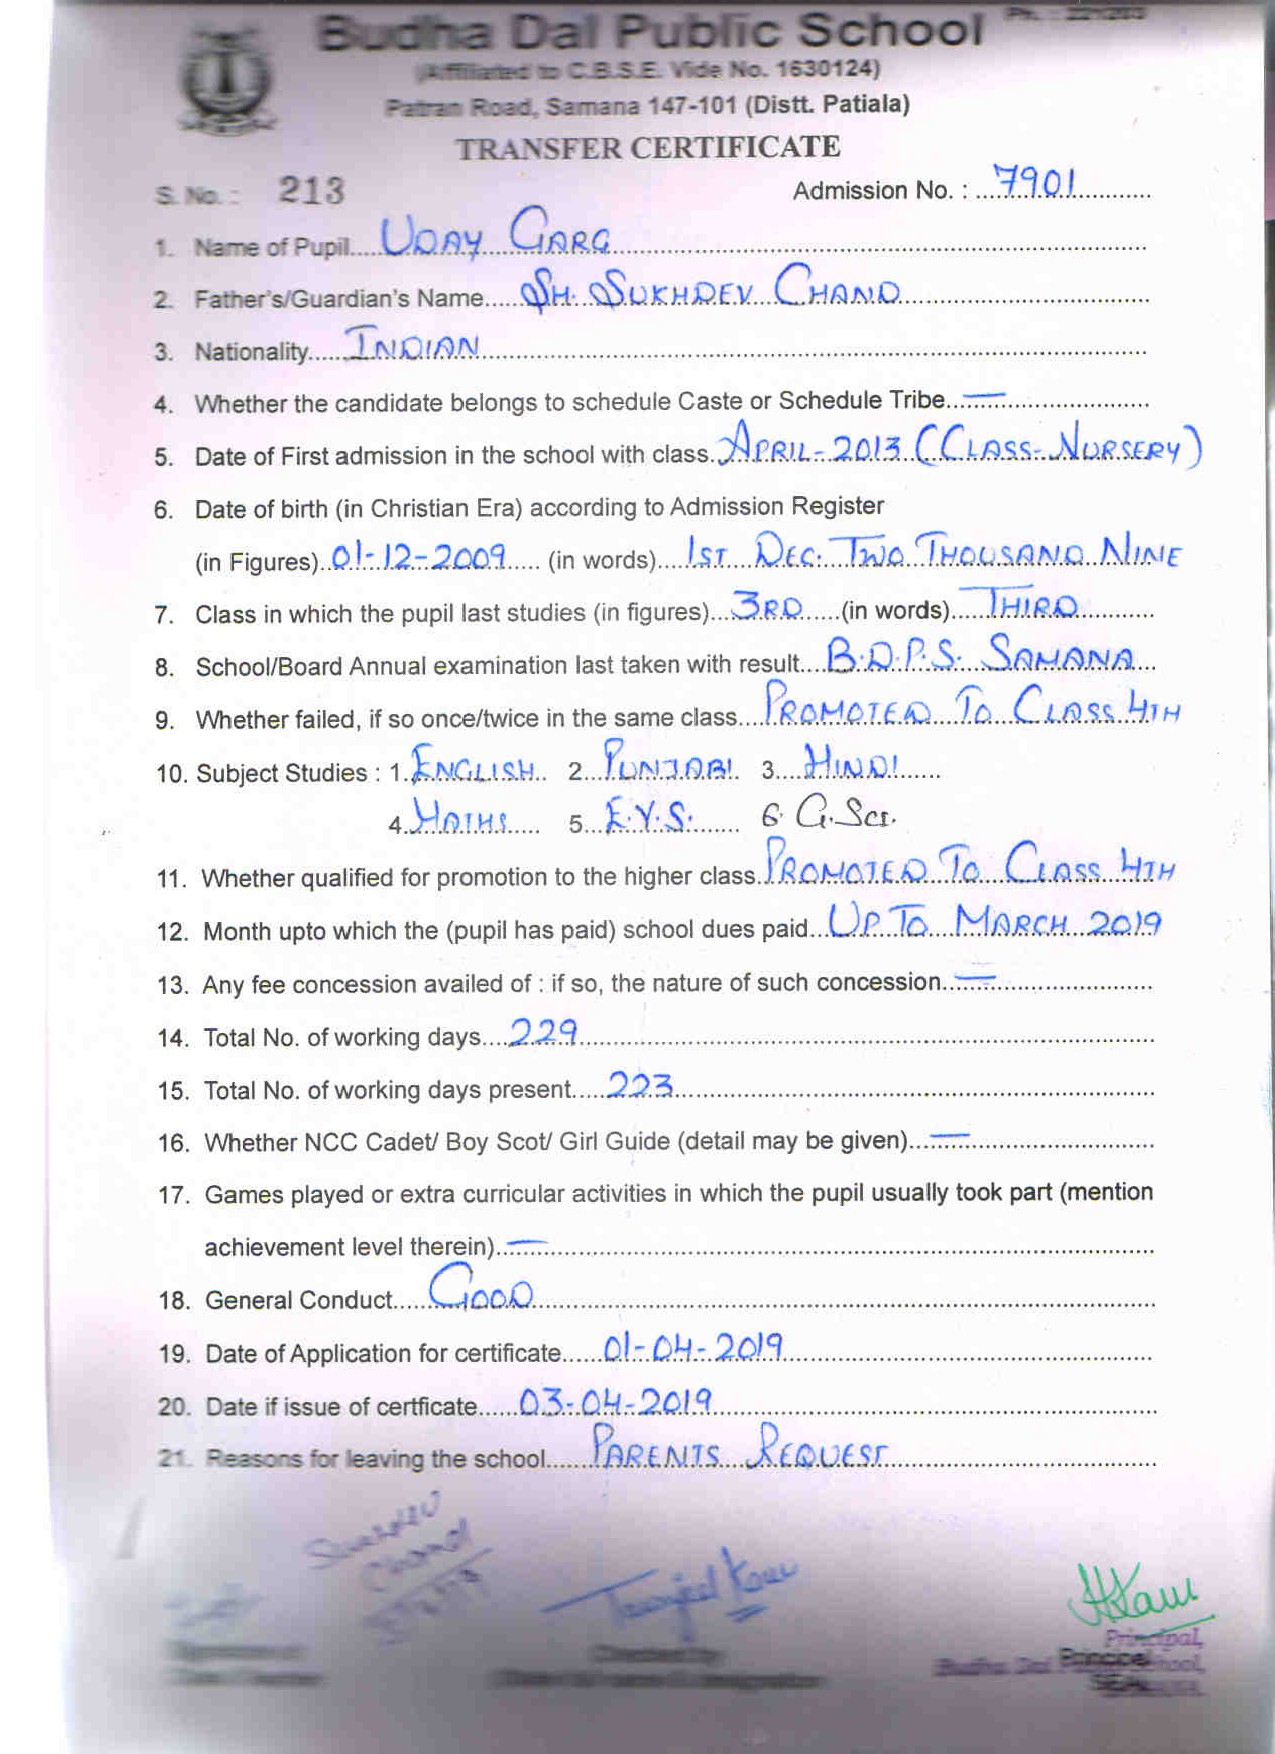 Budha Dal Public School
(Affiliated to C.B.S.E. Vide No. 1630124)
Patran Road, Samana 147-101 (Distt. Patiala)
TRANSFER CERTIFICATE
S. No. : 213 Admission No. : 7901
1. Name of Pupil UDAY GARG
2. Father's/Guardian's Name SH. SUKHDEV CHAND
3. Nationality INDIAN
4. Whether the candidate belongs to schedule Caste or Schedule Tribe —
5. Date of First admission in the school with class APRIL-2013 (CLASS-NURSERY)
6. Date of birth (in Christian Era) according to Admission Register
(in Figures) 01-12-2009 (in words) 1ST DEC. TWO THOUSAND NINE
7. Class in which the pupil last studies (in figures) 3RD (in words) THIRD
8. School/Board Annual examination last taken with result B.D.P.S. SAMANA
9. Whether failed, if so once/twice in the same class PROMOTED TO CLASS 4TH
10. Subject Studies : 1. ENGLISH 2. PUNJABI 3. HINDI
4. MATHS 5. E.V.S. 6. G.Sci.
11. Whether qualified for promotion to the higher class PROMOTED TO CLASS 4TH
12. Month upto which the (pupil has paid) school dues paid UP TO MARCH 2019
13. Any fee concession availed of : if so, the nature of such concession —
14. Total No. of working days 229
15. Total No. of working days present 223
16. Whether NCC Cadet/ Boy Scot/ Girl Guide (detail may be given) —
17. Games played or extra curricular activities in which the pupil usually took part (mention
achievement level therein) —
18. General Conduct GOOD
19. Date of Application for certificate 01-04-2019
20. Date if issue of certficate 03-04-2019
21. Reasons for leaving the school PARENTS REQUEST
Chand
Kaur
Principal,
Budha Dal
Principal
SEAL